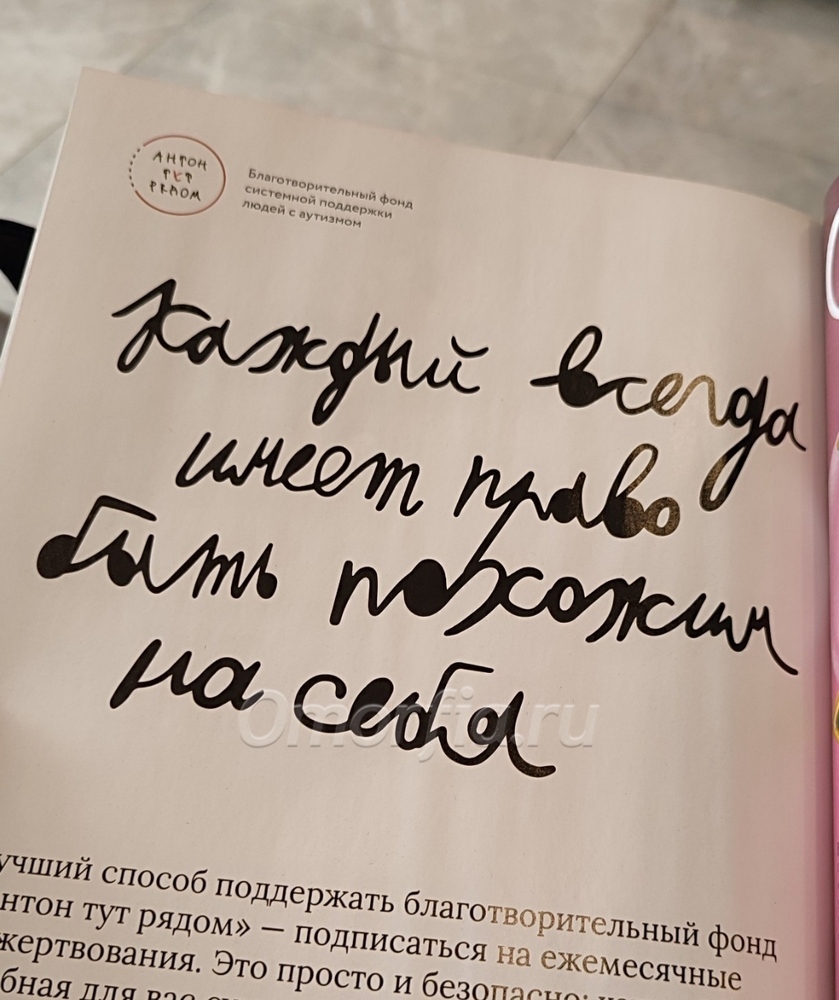 АНТОН
ТУТ
РЯДОМ
Благотворительный фонд
системной поддержки
людей с аутизмом
Каждый всегда
имеет право
быть похожим
на себя
Omorfia.ru
учший способ поддержать благотворительный фонд
нтон тут рядом» — подписаться на ежемесячные
жертвования. Это просто и безопасно:
бная для вас